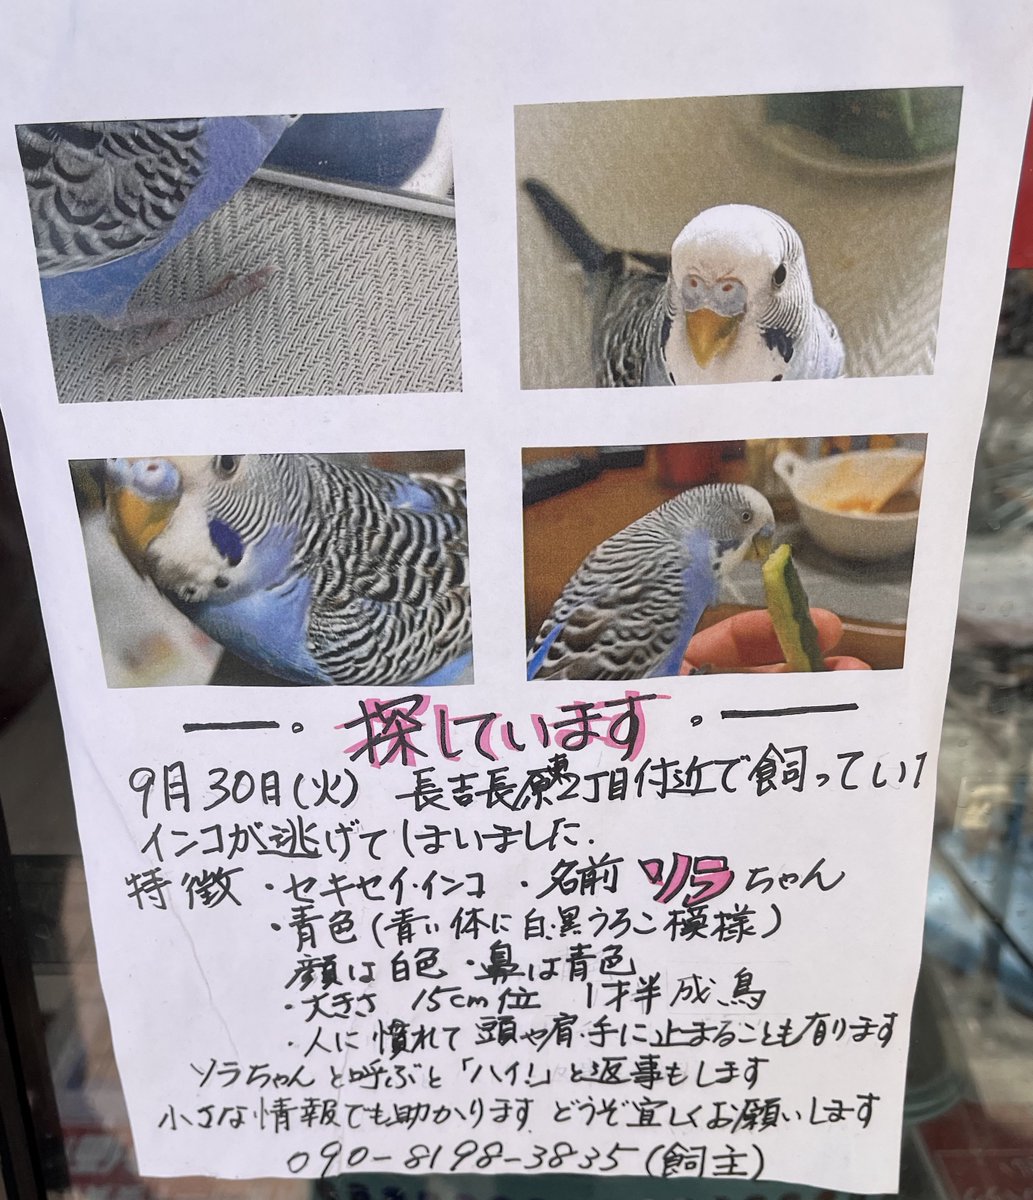 探しています
9月30日(火) 長吉長原東2丁目付近で飼ってい
インコが逃げてしまいました.
特徴 ・セキセイ・インコ ・名前 ソラちゃん
・青色(青い体に白・黒うろこ模様)
顔は白色・鼻は青色
・大きさ 15cm位 1才半成鳥
・人に慣れて頭や肩・手に止まることも有ります
ソラちゃんと呼ぶと「ハイ!」と返事もします
小さな情報でも助かります どうぞ宜しくお願いします
090-8198-3835(飼主)